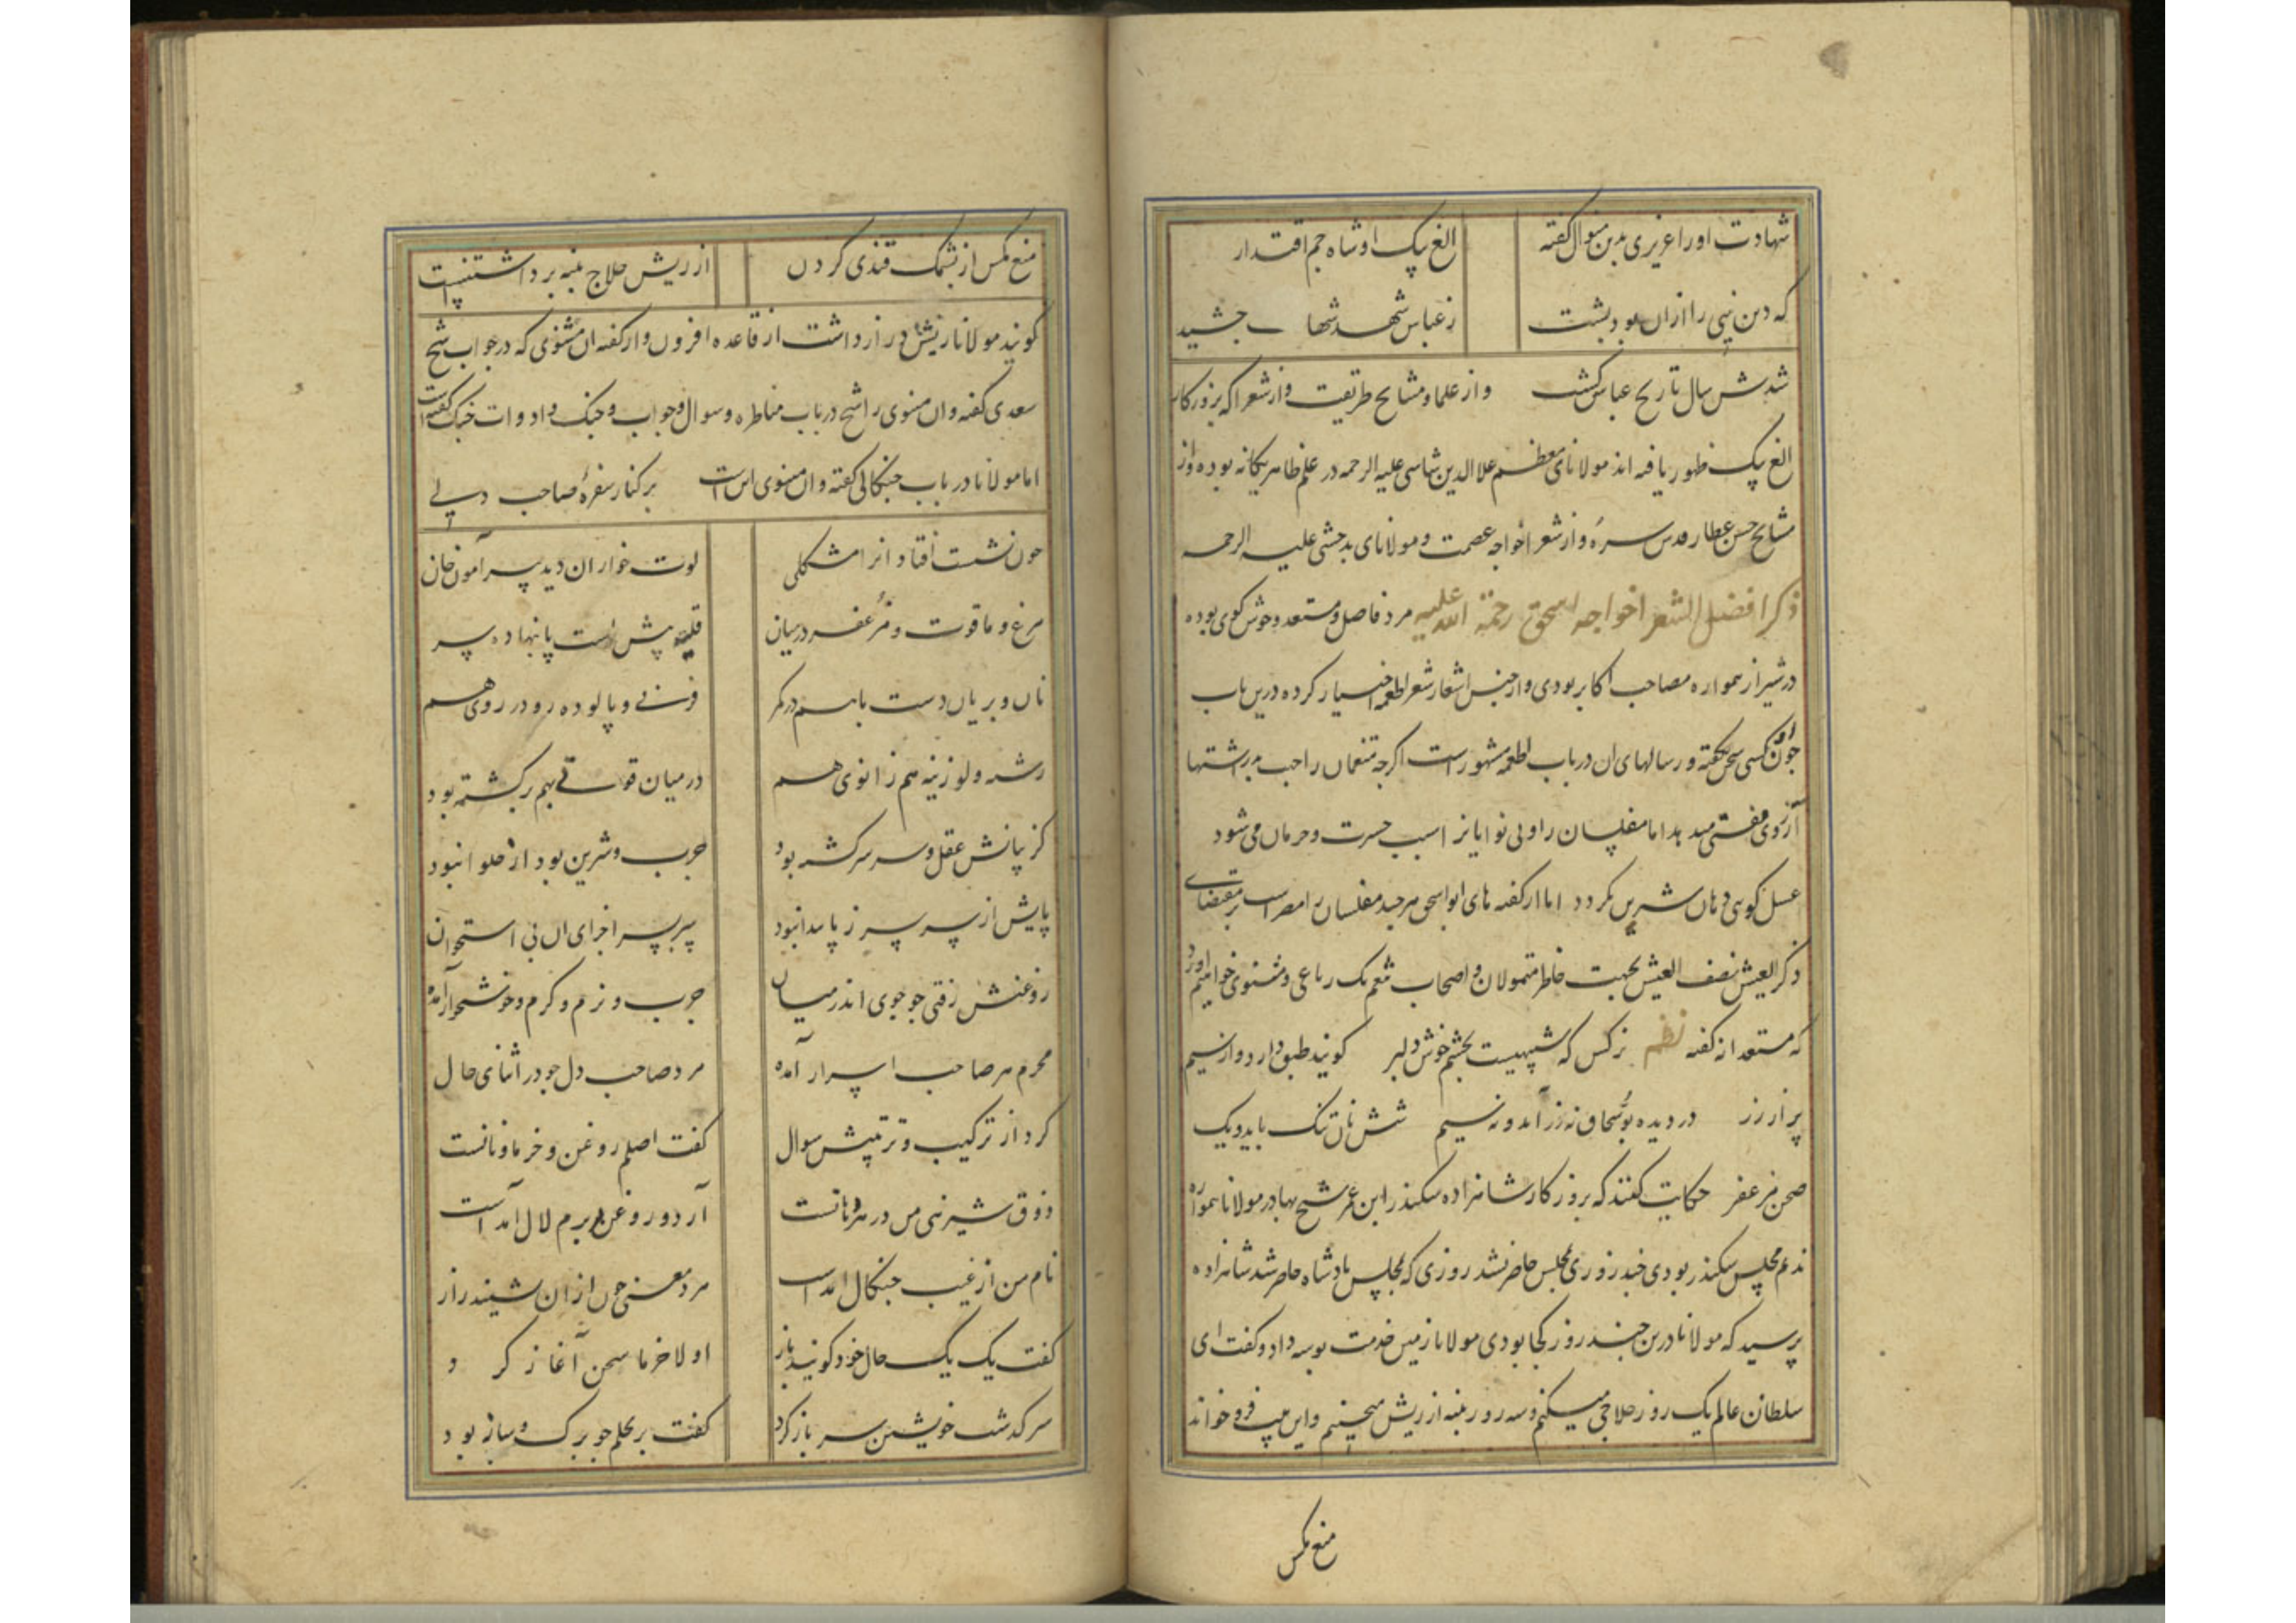 شهادت اورا عزیزی بدین منوال گفته الغ بیک اوشاه جم اقتدار
که دین نبی را ازان بود پشت ز عباس شهد شهادت چشید
شدش سال تاریخ عباس کشت واز علما و مشایخ طریقت واز شعرا که بروزکار
الغ بیک ظهور یافته اند مولانای معظم علاالدین شاسی علیه الرحمه در علم ظاهر یکانه بوده واز
مشایخ حسن عطار قدس سره واز شعرا خواجه عصمت و مولانای بدخشی علیه الرحمه
ذکر افضل الشعرا خواجه اسحق رحمة الله علیه مرد فاضل و مستعد و خوش کوی بوده
در شیراز همواره مصاحب اکابر بودی واز جنس اشعار شعر اطعمه اختیار کرده درین باب
چون او کسی سخن نکفته و رسالهای ان در باب اطعمه مشهور است اگرچه متنعمان را حسب برشتها
آرزوی مفتی میدهد اما مفلسان را و بی نوایانرا سبب حسرت و حرمان می شود
عسل کوی دهان شیرین نکردد اما از کفته های ابواسحق هر چند مفلسان را مضر است بر مقتضای
ذکر العیش نصف العیش بجهت خاطر متمولان و اصحاب نعم یک رباعی و مثنوی خواهیم اورد
که مستعدانه کفته نظم نرکس که شبیهست بچشم خوش دلبر کویند طبق دارد و از سیم
پر از زر در دیده بوسحاق نه زر آمد و نه سیم شش نان تنک باید و یک
صحن مزعفر حکایت کفتند که بروزکار شاهزاده سکندر ابن عمر شیخ بهادر مولانا همواره
ندیم مجلس سکندر بودی چند روزی بمجلس حاضر نشد روزی که بمجلس پادشاه حاضر شد شاهزاده
پرسید که مولانا درین چند روز کجا بودی مولانا زمین خدمت بوسه داد و کفت ای
سلطان عالم یک روز حلاجی میکنم و سه روز پنبه از ریش میچینم واین بیت فرو خواند
منع مکس
منع مکس از پشمک قندی کردن از ریش حلاج پنبه برداشتنست
کویند مولانا ریش دراز داشت از قاعده افزون واز کفته ان مثنوی که در جواب شیخ
سعدی کفته وان مثنوی را شیخ در باب مناظره و سوال و جواب و جنک و ادوات جنک کفته است
اما مولانا در باب چنکالی کفته وان مثنوی اینست بر کنار سفرهٔ صاحب دلی
چون نشست افتاد انرا مشکلی لوت خواران دید پیرامون خان
مرغ و ماقوت و مزعفر در میان قلیه پیش است پا نهاده سر
نان و بریان دست با هم در کمر فرنی و پالوده رو در روی هم
رشته و لوزینه هم زانوی هم در میان قوتی بهم برکشته بود
کز بیانش عقل و سر سرکشته بود چرب و شیرین بود از حلوا نبود
پایش از سر سر ز پا پیدا نبود سربسر اجزای ان بی استخوان
روغنش رفتی چو جوی اندر میان چرب و نرم و کرم و خوشخوار آمده
محرم هر صاحب اسرار آمده مرد صاحب دل چو در اثنای حال
کرد از ترکیب و ترتیبش سوال کفت اصلم روغن و خرما و نانست
ذوق شیرینی من در هر دهانست آرد و روغن بر برم لال آمد است
نام من از غیب چنکال امد است مرد معنی چون ازان شیند راز
کفت یک یک حال خود کویید باز اولا خرما سخن آغاز کرد
سرکذشت خویشتن سر باز کرد کفت بر نخلم چو برک و ساز بود